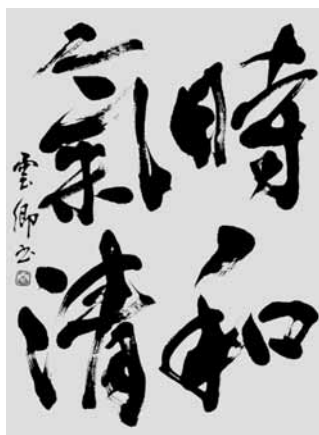 時和
氣清
雲卿书